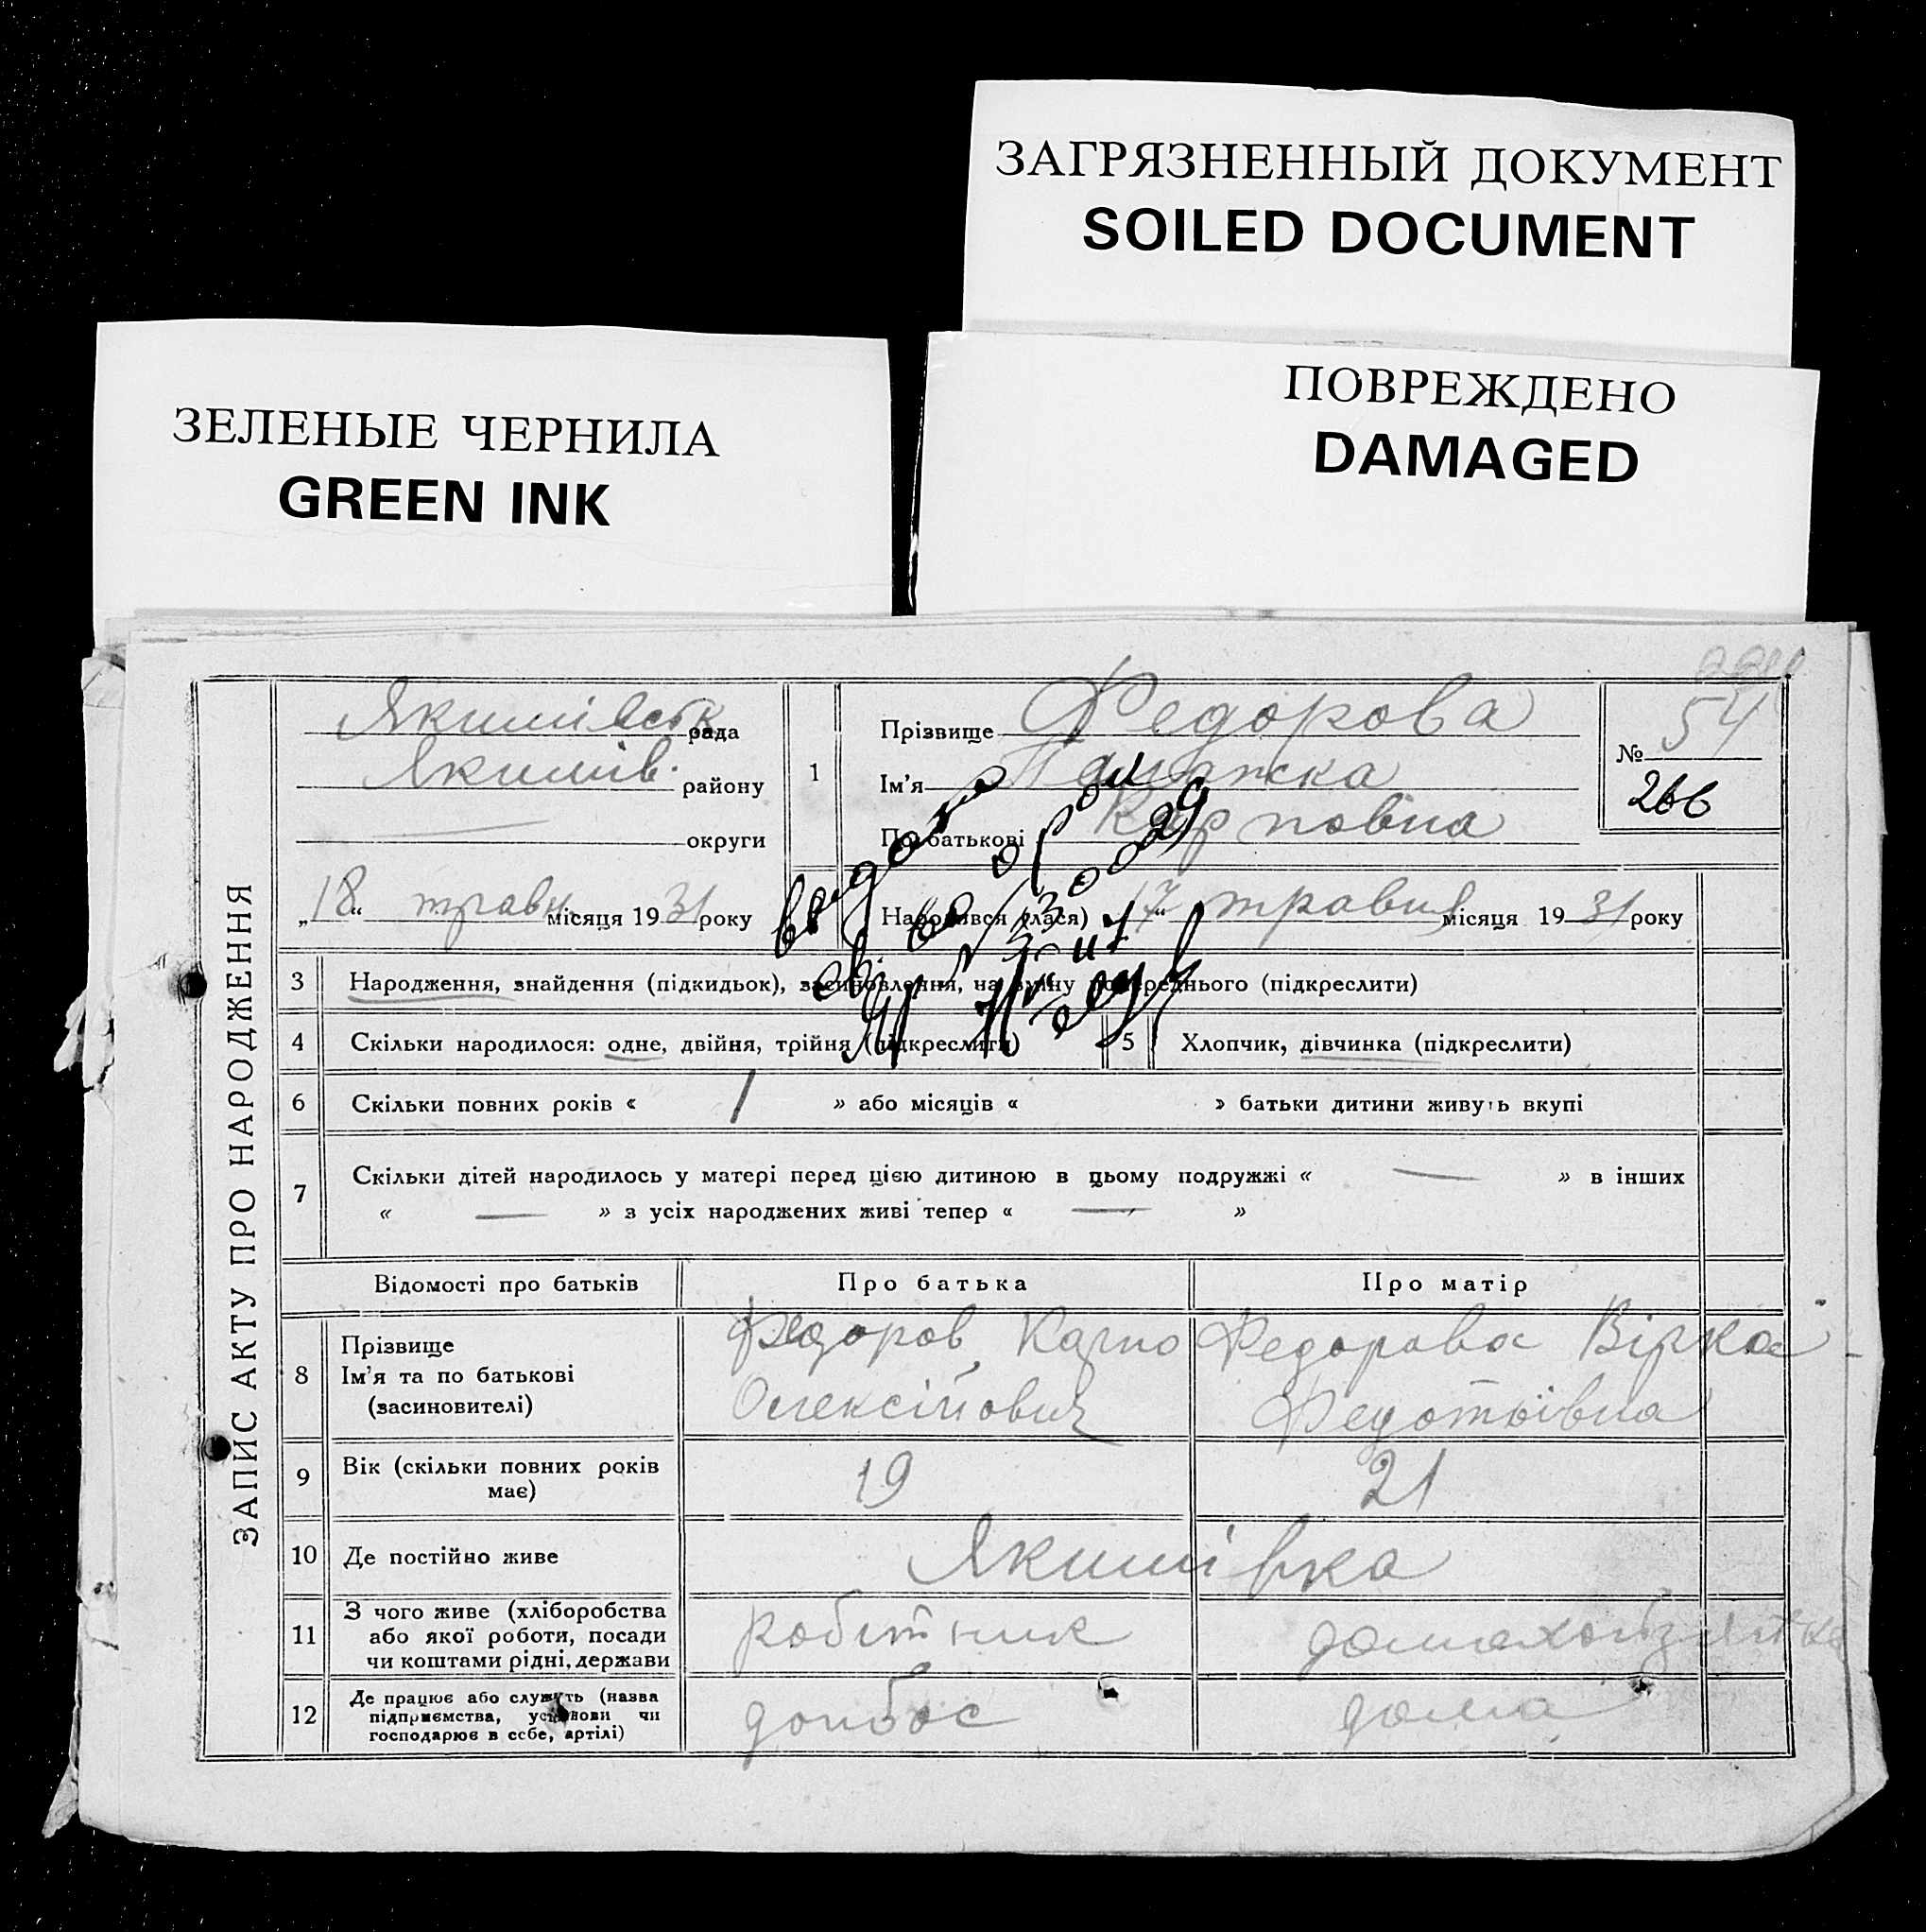 ЗАГРЯЗНЕННЫЙ ДОКУМЕНТ
SOILED DOCUMENT
ПОВРЕЖДЕНО
DAMAGED
ЗЕЛЕНЫЕ ЧЕРНИЛА
GREEN INK
ЗАПИС АКТУ ПРО НАРОДЖЕННЯ
Якимівськ рада
Якимів. району
округи
„18“ травн. місяця 1931 року
1
Прізвище Федорова
Ім'я
По батькові Карповна
№ 54
266
Народився (лася) 17“ травня місяця 1931 року
3 Народження, знайдення (підкидьок), засиновлення, на зміну попереднього (підкреслити)
4 Скільки народилося: одне, двійня, трійня (підкреслити) 5 Хлопчик, дівчинка (підкреслити)
6 Скільки повних років « 1 » або місяців « » батьки дитини живуть вкупі
7 Скільки дітей народилось у матері перед цією дитиною в цьому подружжі « — » в інших
« — » з усіх народжених живі тепер « — »
Відомості про батьків Про батька Про матір
8 Прізвище
Ім'я та по батькові
(засиновителі)
Федоров Карпо
Олексійович
Федорова Вірка
Федотоївна
9 Вік (скільки повних років
має)
19 21
10 Де постійно живе Якимівка
11 З чого живе (хліборобства
або якої роботи, посади
чи коштами рідні, держави
робітник
12 Де працює або служить (назва
підприємства, установи чи
господарює в себе, артілі)
донбас дома